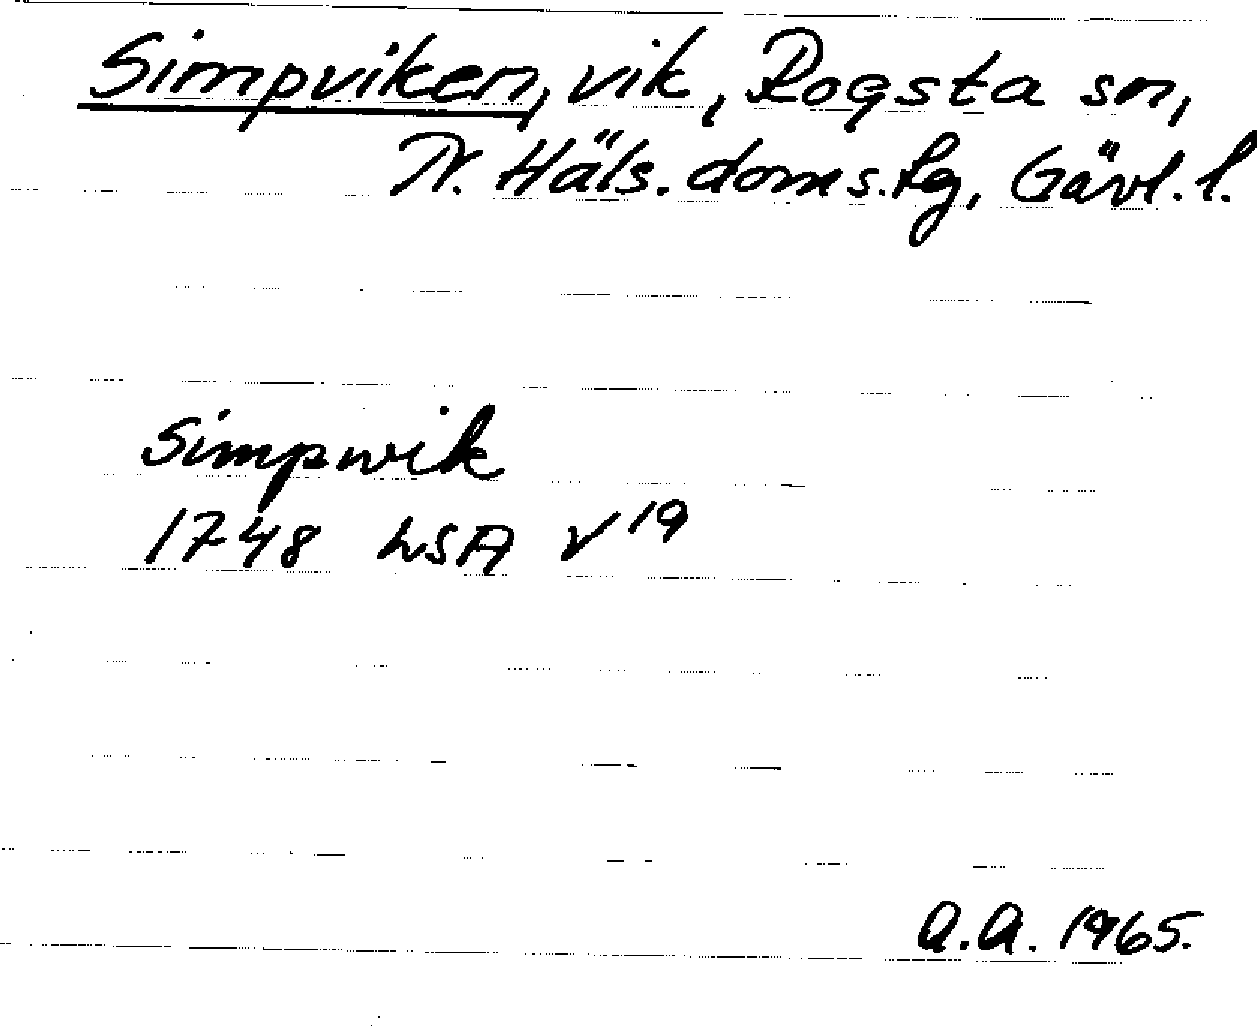 Simpviken, vik, Rogsta sn,
N. Häls. doms.fg, Gävl. l.
Simpwik
1748 LSA V19
A.A. 1965.